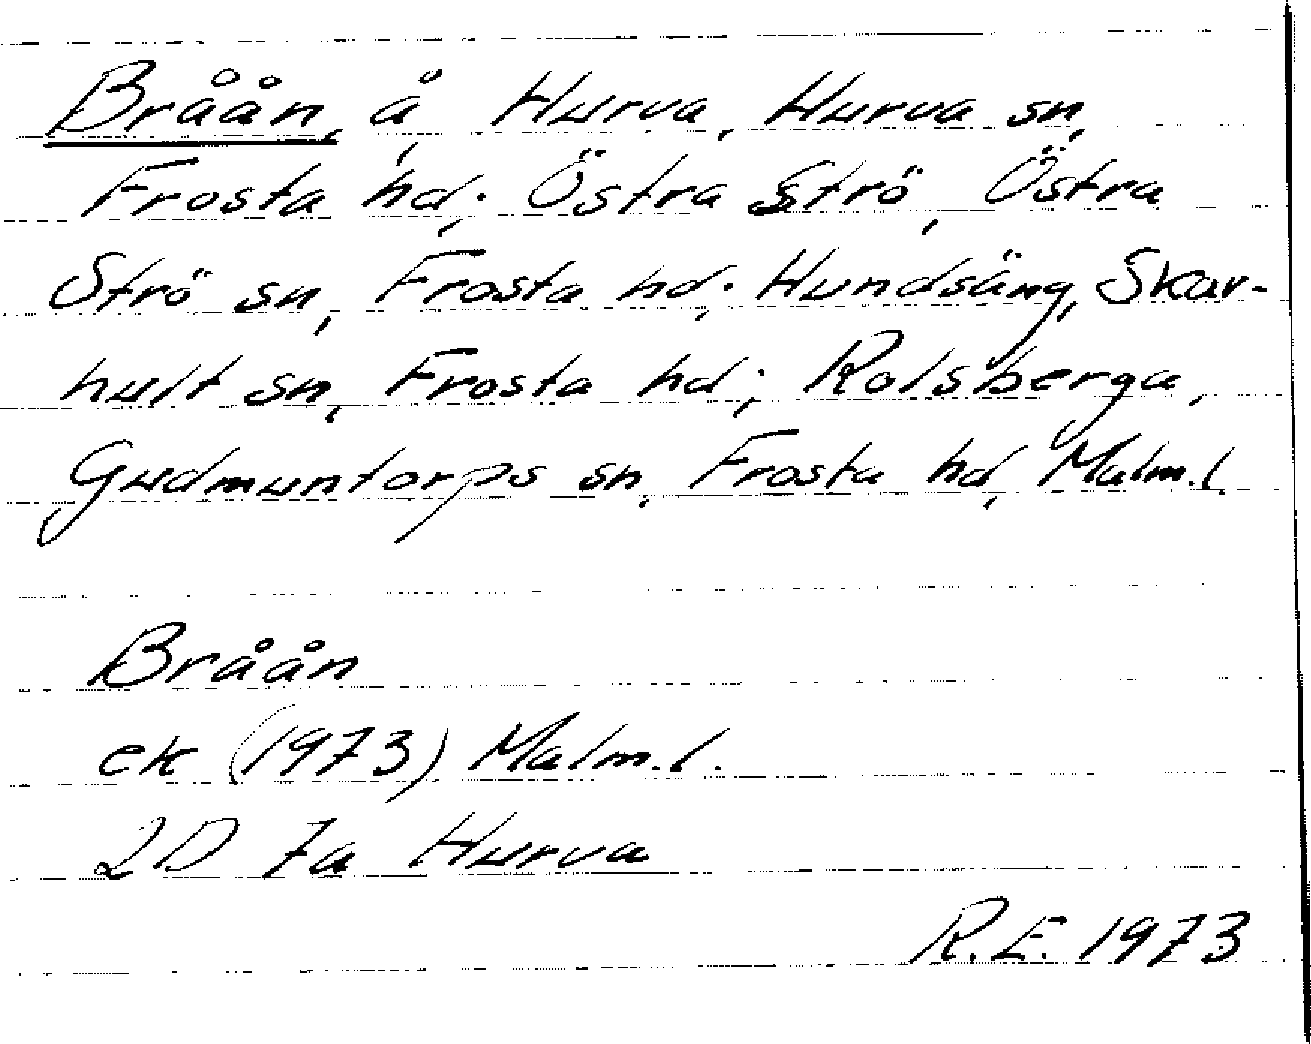 Bråån, å, Hurva, Hurva sn,
Frosta hd; Östra Strö, Östra
Strö sn, Frosta hd; Hundsäng, Skar-
hult sn, Frosta hd; Rolsberga,
Gudmuntorps sn, Frosta hd, Malm.l.
Bråån
ek (1973) Malm.l.
2D 7a Hurva
R.E. 1973